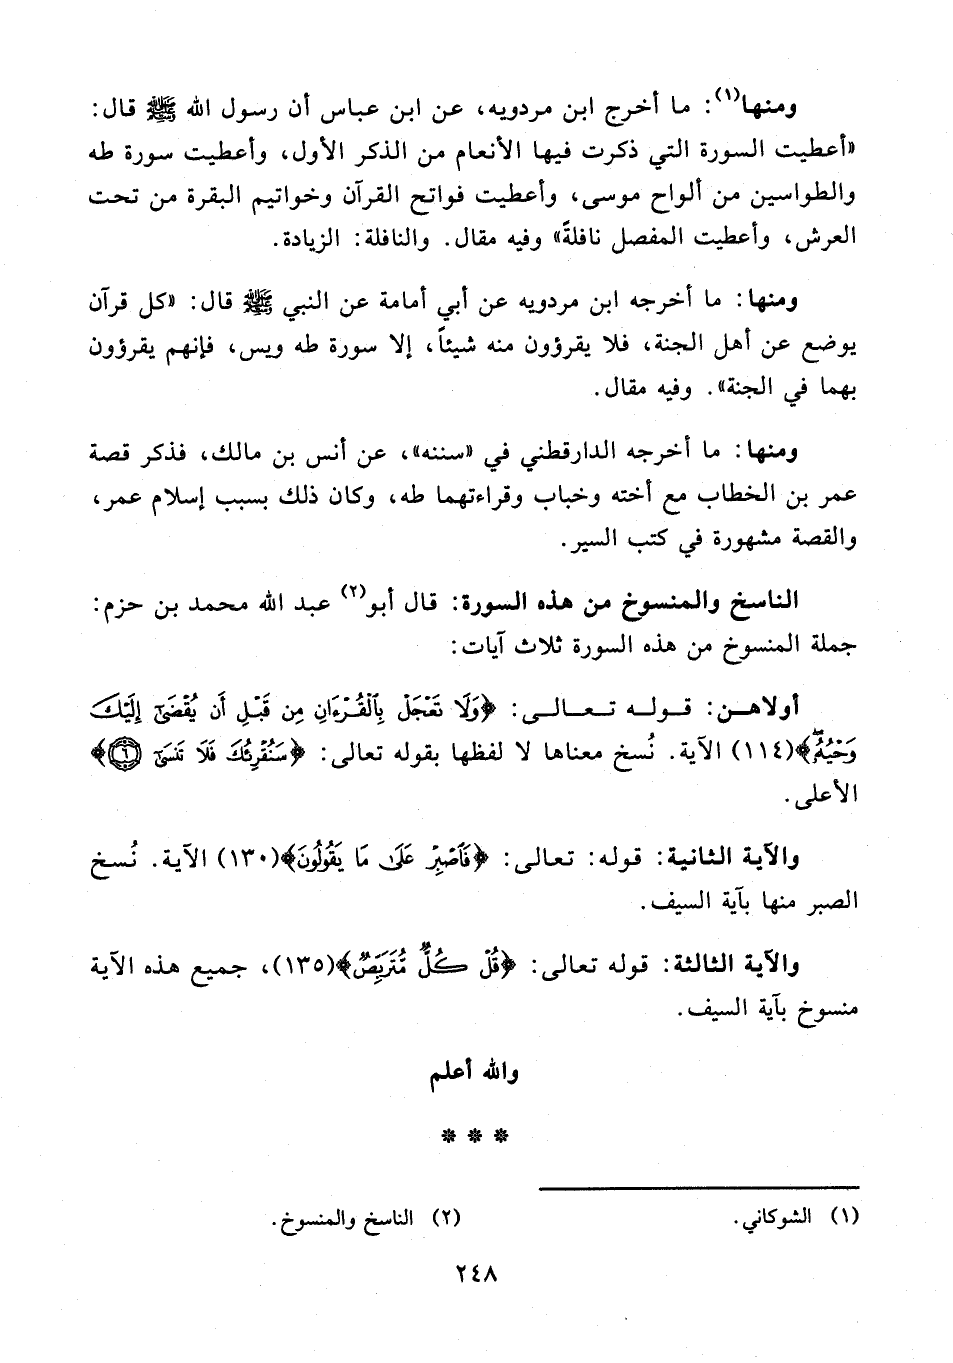 ومنها(١): ما أخرج ابن مردويه، عن ابن عباس أن رسول الله ﷺ قال:
«أعطيت السورة التي ذكرت فيها الأنعام من الذكر الأول، وأعطيت سورة طه
والطواسين من ألواح موسى، وأعطيت فواتح القرآن وخواتيم البقرة من تحت
العرش، وأعطيت المفصل نافلةً» وفيه مقال. والنافلة: الزيادة.
ومنها: ما أخرجه ابن مردويه عن أبي أمامة عن النبي ﷺ قال: «كل قرآن
يوضع عن أهل الجنة، فلا يقرؤون منه شيئاً، إلا سورة طه ويس، فإنهم يقرؤون
بهما في الجنة». وفيه مقال.
ومنها: ما أخرجه الدارقطني في «سننه»، عن أنس بن مالك، فذكر قصة
عمر بن الخطاب مع أخته وخباب وقراءتهما طه، وكان ذلك بسبب إسلام عمر،
والقصة مشهورة في كتب السير.
الناسخ والمنسوخ من هذه السورة: قال أبو(٢) عبد الله محمد بن حزم:
جملة المنسوخ من هذه السورة ثلاث آيات:
أولاهن: قوله تعالى: ﴿وَلَا تَعْجَلْ بِٱلْقُرْءَانِ مِن قَبْلِ أَن يُقْضَىٰٓ إِلَيْكَ
وَحْيُهُۥ﴾(١١٤) الآية. نُسخ معناها لا لفظها بقوله تعالى: ﴿سَنُقْرِئُكَ فَلَا تَنسَىٰٓ ٦﴾
الأعلى.
والآية الثانية: قوله: تعالى: ﴿فَٱصْبِرْ عَلَىٰ مَا يَقُولُونَ﴾(١٣٠) الآية. نُسخ
الصبر منها بآية السيف.
والآية الثالثة: قوله تعالى: ﴿قُلْ كُلٌّ مُّتَرَبِّصٌ﴾(١٣٥)، جميع هذه الآية
منسوخ بآية السيف.
والله أعلم
* * *
(١) الشوكاني.
(٢) الناسخ والمنسوخ.
٢٤٨